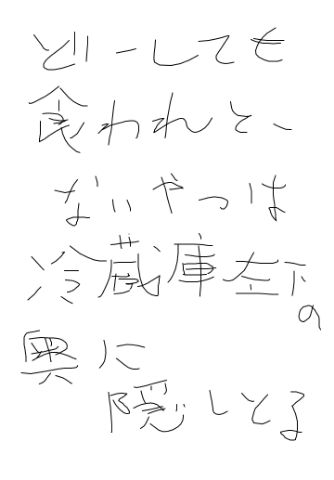 どーしても
食われと、
ないやつは
冷蔵庫左下の
奥に
隠しとる